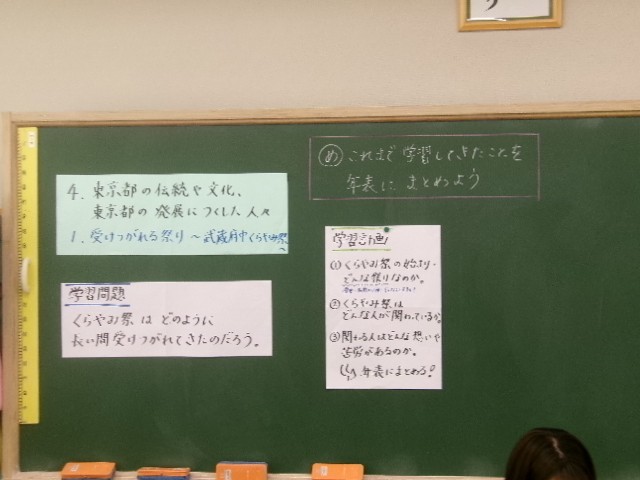 め これまで学習してきたことを
年表にまとめよう
4. 東京都の伝統や文化、
東京都の発展につくした人々
1. 受けつがれる祭り ~武蔵府中くらやみ祭~
学習問題
くらやみ祭はどのように
長い間受けつがれてきたのだろう。
学習計画
① くらやみ祭の始まり・
どんな祭りなのか。
② くらやみ祭は
どんな人が関わっているか。
③ 関わる人はどんな想いや
苦労があるのか。
年表にまとめる!